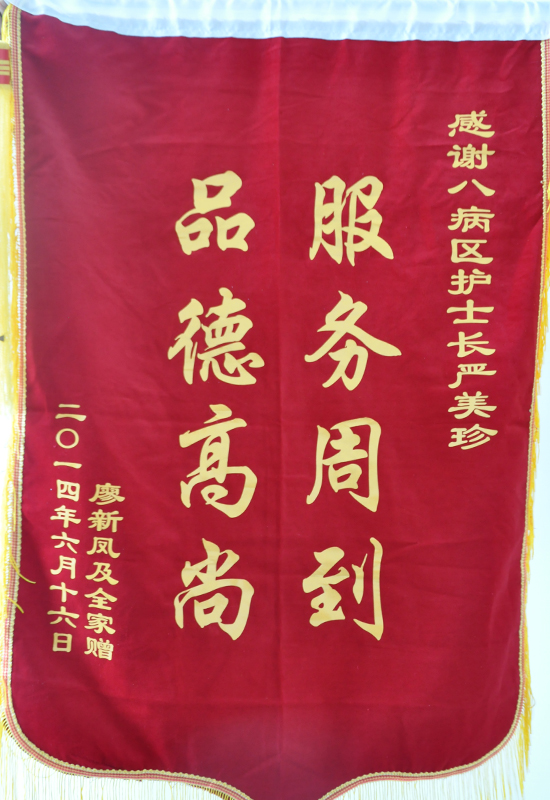 感谢八病区护士长严美珍
服务周到
品德高尚
廖新凤及全家赠
二〇一四年六月十六日